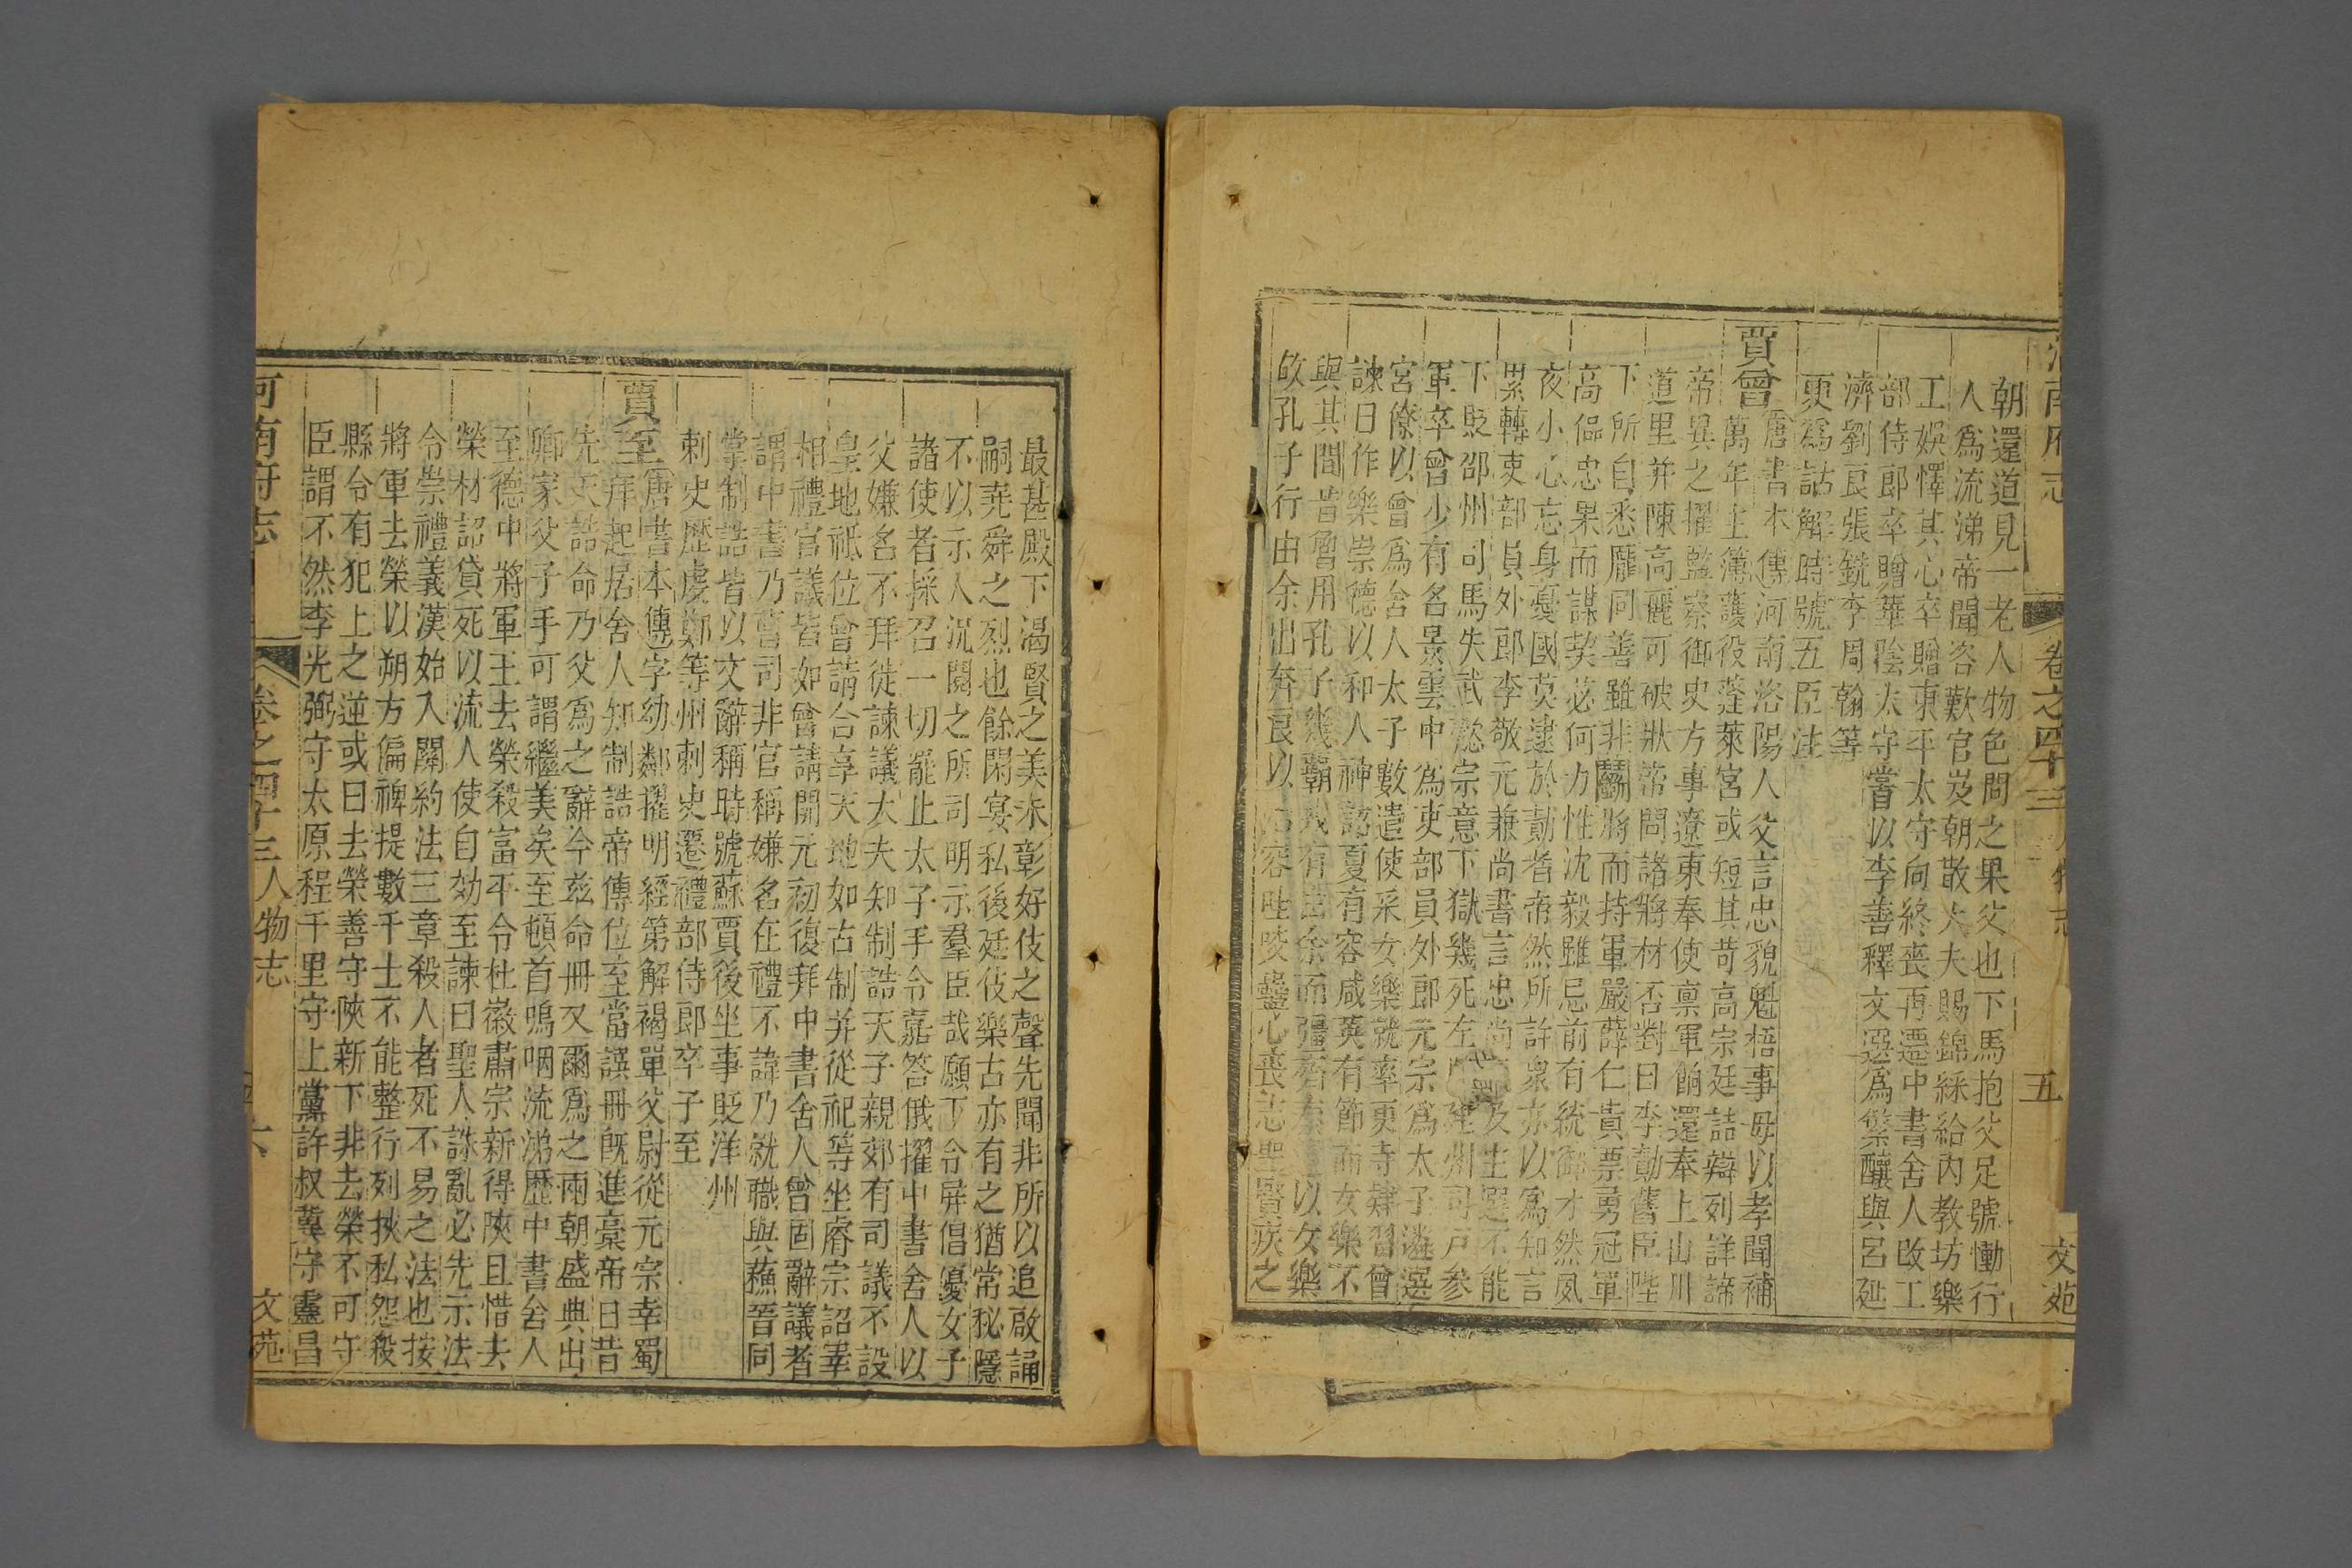 河南府志 卷之四十三 人物志 五 文苑
朝還道見一老人物色問之果父也下馬抱父足號慟行
人為流涕帝聞咨歎官岌朝散大夫賜錦綵給內教坊樂
工娛懌其心卒贈東平太守向終喪再遷中書舍人改工
部侍郎卒贈華陰太守嘗以李善釋文選為繁釀與呂延
濟劉良張銑李周翰等
更為詁解時號五臣注
賈曾唐書本傳河南洛陽人父言忠貌魁梧事母以孝聞補
萬年主簿護役蓬萊宮或短其苛高宗廷詰辯列詳諦
帝異之擢監察御史方事遼東奉使稟軍餉還奉上山川
道里并陳高麗可破狀帝問諸將材否對曰李勣舊臣陛
下所自悉龐同善雖非鬭將而持軍嚴薛仁貴票勇冠軍
高偘忠果而謀契苾何力性沈毅雖忌前有統御才然夙
夜小心忘身憂國莫逮於勣者帝然所許眾亦以為知言
累轉吏部員外郎李敬元兼尚書言忠尚氣及主選不能
下貶邵州司馬失武懿宗意下獄幾死左建州司戶參
軍卒曾少有名景雲中為吏部員外郎元宗為太子遴選
宮僚以曾為舍人太子數遣使采女樂就率更寺肄習曾
諫曰作樂崇德以和人神詔夏有容咸英有節而女樂不
與其間昔魯用孔子幾霸戎有由余而彊齊秦以女樂
故孔子行由余出奔良以冶容哇咬蠱心喪志聖賢疾之
最甚殿下渴賢之美未彰好伎之聲先聞非所以追啟誦
嗣堯舜之烈也餘閑宴私後廷伎樂古亦有之猶當秘隱
不以示人況閱之所司明示羣臣哉願下令屏倡優女子
諸使者採召一切罷止太子手令嘉答俄擢中書舍人以
父嫌名不拜徙諫議大夫知制誥天子親郊有司議不設
皇地祇位曾請合享天地如古制并從祀等坐睿宗詔宰
相禮官議皆如曾請開元初復拜中書舍人曾固辭議者
謂中書乃曹司非官稱嫌名在禮不諱乃就職與蘇晉同
掌制誥皆以文辭稱時號蘇賈後坐事貶洋州
刺史歷虔鄭等州刺史遷禮部侍郎卒子至
賈至唐書本傳字幼鄰擢明經第解褐單父尉從元宗幸蜀
拜起居舍人知制誥帝傳位至當譔冊既進稾帝曰昔
先天誥命乃父為之辭今茲命冊又爾為之兩朝盛典出
卿家父子手可謂繼美矣至頓首嗚咽流涕歷中書舍人
至德中將軍王去榮殺富平令杜徽肅宗新得陝且惜去
榮材詔貸死以流人使自効至諫曰聖人誅亂必先示法
令崇禮義漢始入關約法三章殺人者死不易之法也按
將軍去榮以朔方偏裨提數千士不能整行列挾私怨殺
縣令有犯上之逆或曰去榮善守陝新下非去榮不可守
臣謂不然李光弼守太原程千里守上黨許叔冀守靈昌
河南府志 卷之四十三 人物志 六 文苑